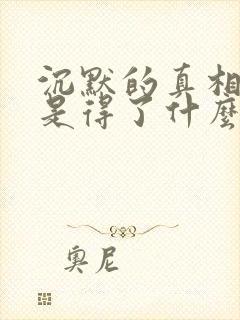 沉默的真相
是得了什麼
奧尼